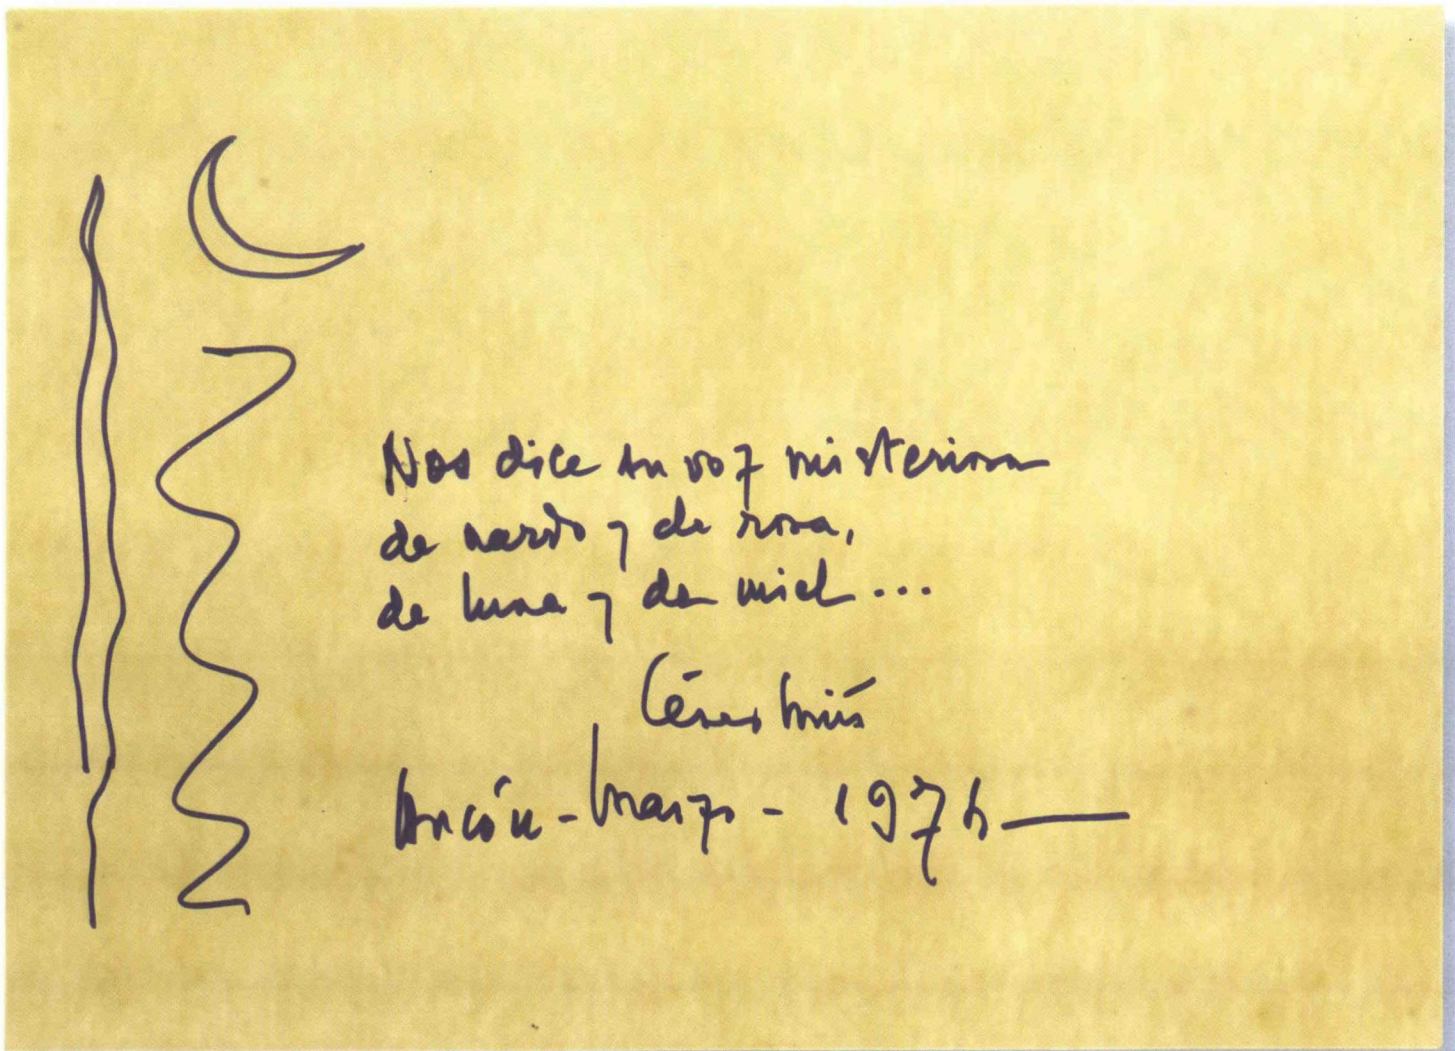 Nos dice su voz misteriosa
de nardo y de rosa,
de luna y de miel...
Ancón - Marzo - 197